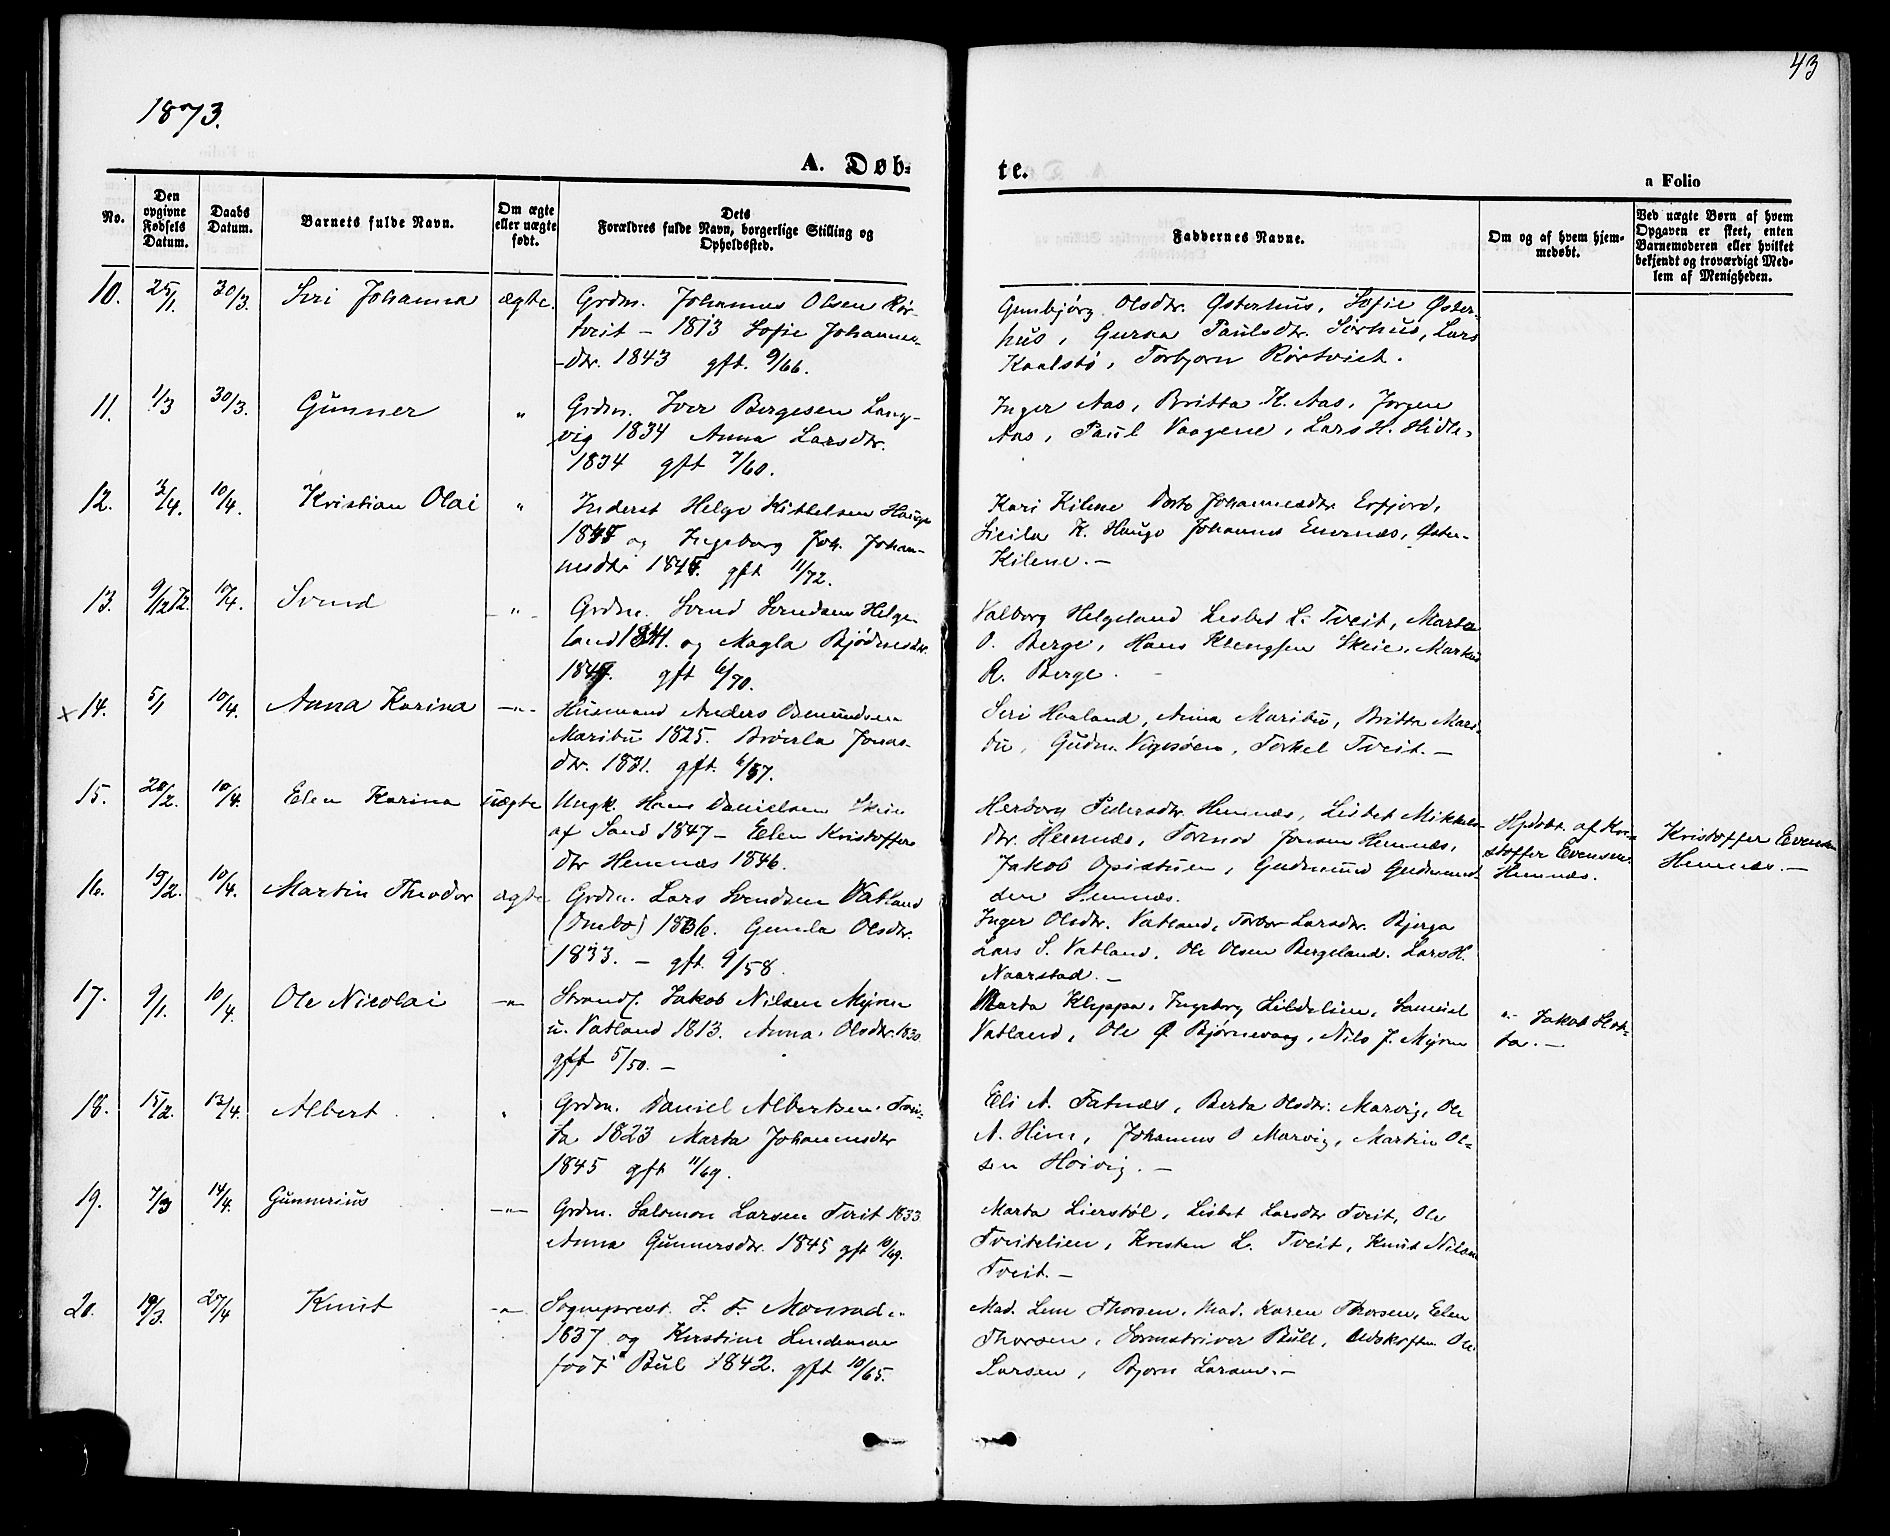 43
1873.
A. Døb-
te.
a Folio
No.
Den opgivne Fødsels Datum.
Daabs Datum.
Barnets fulde Navn.
Om ægte eller uægte født.
Dets Forældres fulde Navn, borgerlige Stilling og Opholdssted.
Faddernes Navne.
Om og af hvem hjemmedøbt.
Ved uægte Børn af hvem Opgaven er skeet, enten Barnemoderen eller hvilket bekjendt og troværdigt Medlem af Menigheden.
10. 25/1. 30/3. Siri Johanna ægte. Grdm. Johannes Olsen Rør-
tveit – 1813 Sofie Johannes-
-dtr. 1843 gft. 9/66.
Gunbjørg Olsdtr. Østerhus, Sofie Øster-
hus, Gurna Paulsdtr. Sørhus, Lars
Kaalstø, Torbjørn Rørtveit.
11. 1/3 30/3. Gunner " Grdm. Iver Børgesen Lang-
vig 1834 Anna Larsdtr.
1834 gft 7/60.
Inger Aas, Britta K. Aas, Jørgen
Aas, Paul Vaagene, Lars H. Hidle.
12. 10/4. Kristian Olai " Inderst Helge Kittelsen Hauge
og Ingeborg Joh. Johan-
nesdtr gft 11/72.
Kari Kilene Dorte Johannesdtr Erfjord,
K. Hauge Johannes Enernæs, Østen-
Kilene. –
13. 9/12 72. 10/4. Svend " Grdm. Svend Svendsen Helge-
land og Magla Bjødnesdtr.
gft 6/70.
Valborg Helgeland Lisbet L. Tveit, Marta
O. Berge, Hans Skeie, Markus
R. Berge.
x 14. 5/1 10/4. Anna Karina –"– Husmand Anders Osmundsen
Maribu 1825. Jonas-
dtr. 1831. gft. 6/57.
Siri Haaland, Anna Maribu, Britta Mari-
bu, Gudm. Vigesøen, Torkel Tveit. –
15. 20/2. 10/4. Elen Karina uægte Ungk. Hans Danielsen Skeie
af Sand 1847 – Elen Kristoffers-
dtr Hemnæs 1846.
Herborg Pedersdtr. Hemnæs, Lisbet Mikkels-
dtr. Hemnæs, Tormod Jonsen Hemnæs,
Jakob Opistuen, Gudmund Gudmund-
sen Hemnæs.
Hjdøbt. af Kri-
stoffer Evensen
Hemnæs.
Kristoffer Evensen
Hemnæs. –
16. 19/2. 10/4. Martin Theodor ægte Grdm. Lars Svendsen Vatland
(Imbø) 1836. Gunla Olsdtr.
1833. – gft. 9/58.
Inger Olsdtr. Vatland, Torbor Larsdtr. Bjerga
Lars S. Vatland, Ole Olsen Bergeland. Lars H.
Naarstad. –
17. 9/1. 10/4. Ole Nicolai –"– Strands. Jakob Nilsen Myren
u. Vatland 1813. Anna Olsdtr. 1830.
gft 5/50. –
Marta Kleppa, Ingeborg Lildelien, Samuel
Vatland, Ole Ø. Bjørnevaag, Nils J. Myren
"– Jakob Slet-
ta. –
18. 15/2. 13/4. Albert " Grdm. Daniel Albertsen
1823 Marta Johannesdtr
1845 gft 11/69.
Eli A. Fatnæs, Berta Olsdtr. Marvig, Ole
A. Him, Johannes O Marvig, Martin Ol-
sen Høivig. –
19. 7/3 14/4. Gunnerius –"– Grdm. Salomon Larsen Tveit 1833
Anna Gunnersdtr. 1845 gft 10/69.
Marta Lierstøl, Lisbet Larsdtr Tveit, Ole
Tveitelien, Kresten L. Tveit, Knut Nilsen
Tveit. –
20. 19/3. 27/4 Knut –"– Sogneprest J. F. Monrad
1837 og Kirstine Lindeman
født Bul 1842. gft 10/65.
Mad. Line Thorsen, Mad. Karen Thorsen, Elen
Thorsen, Sorenskriver Bull, Ole
Larsen, Bjørn Larsen. –